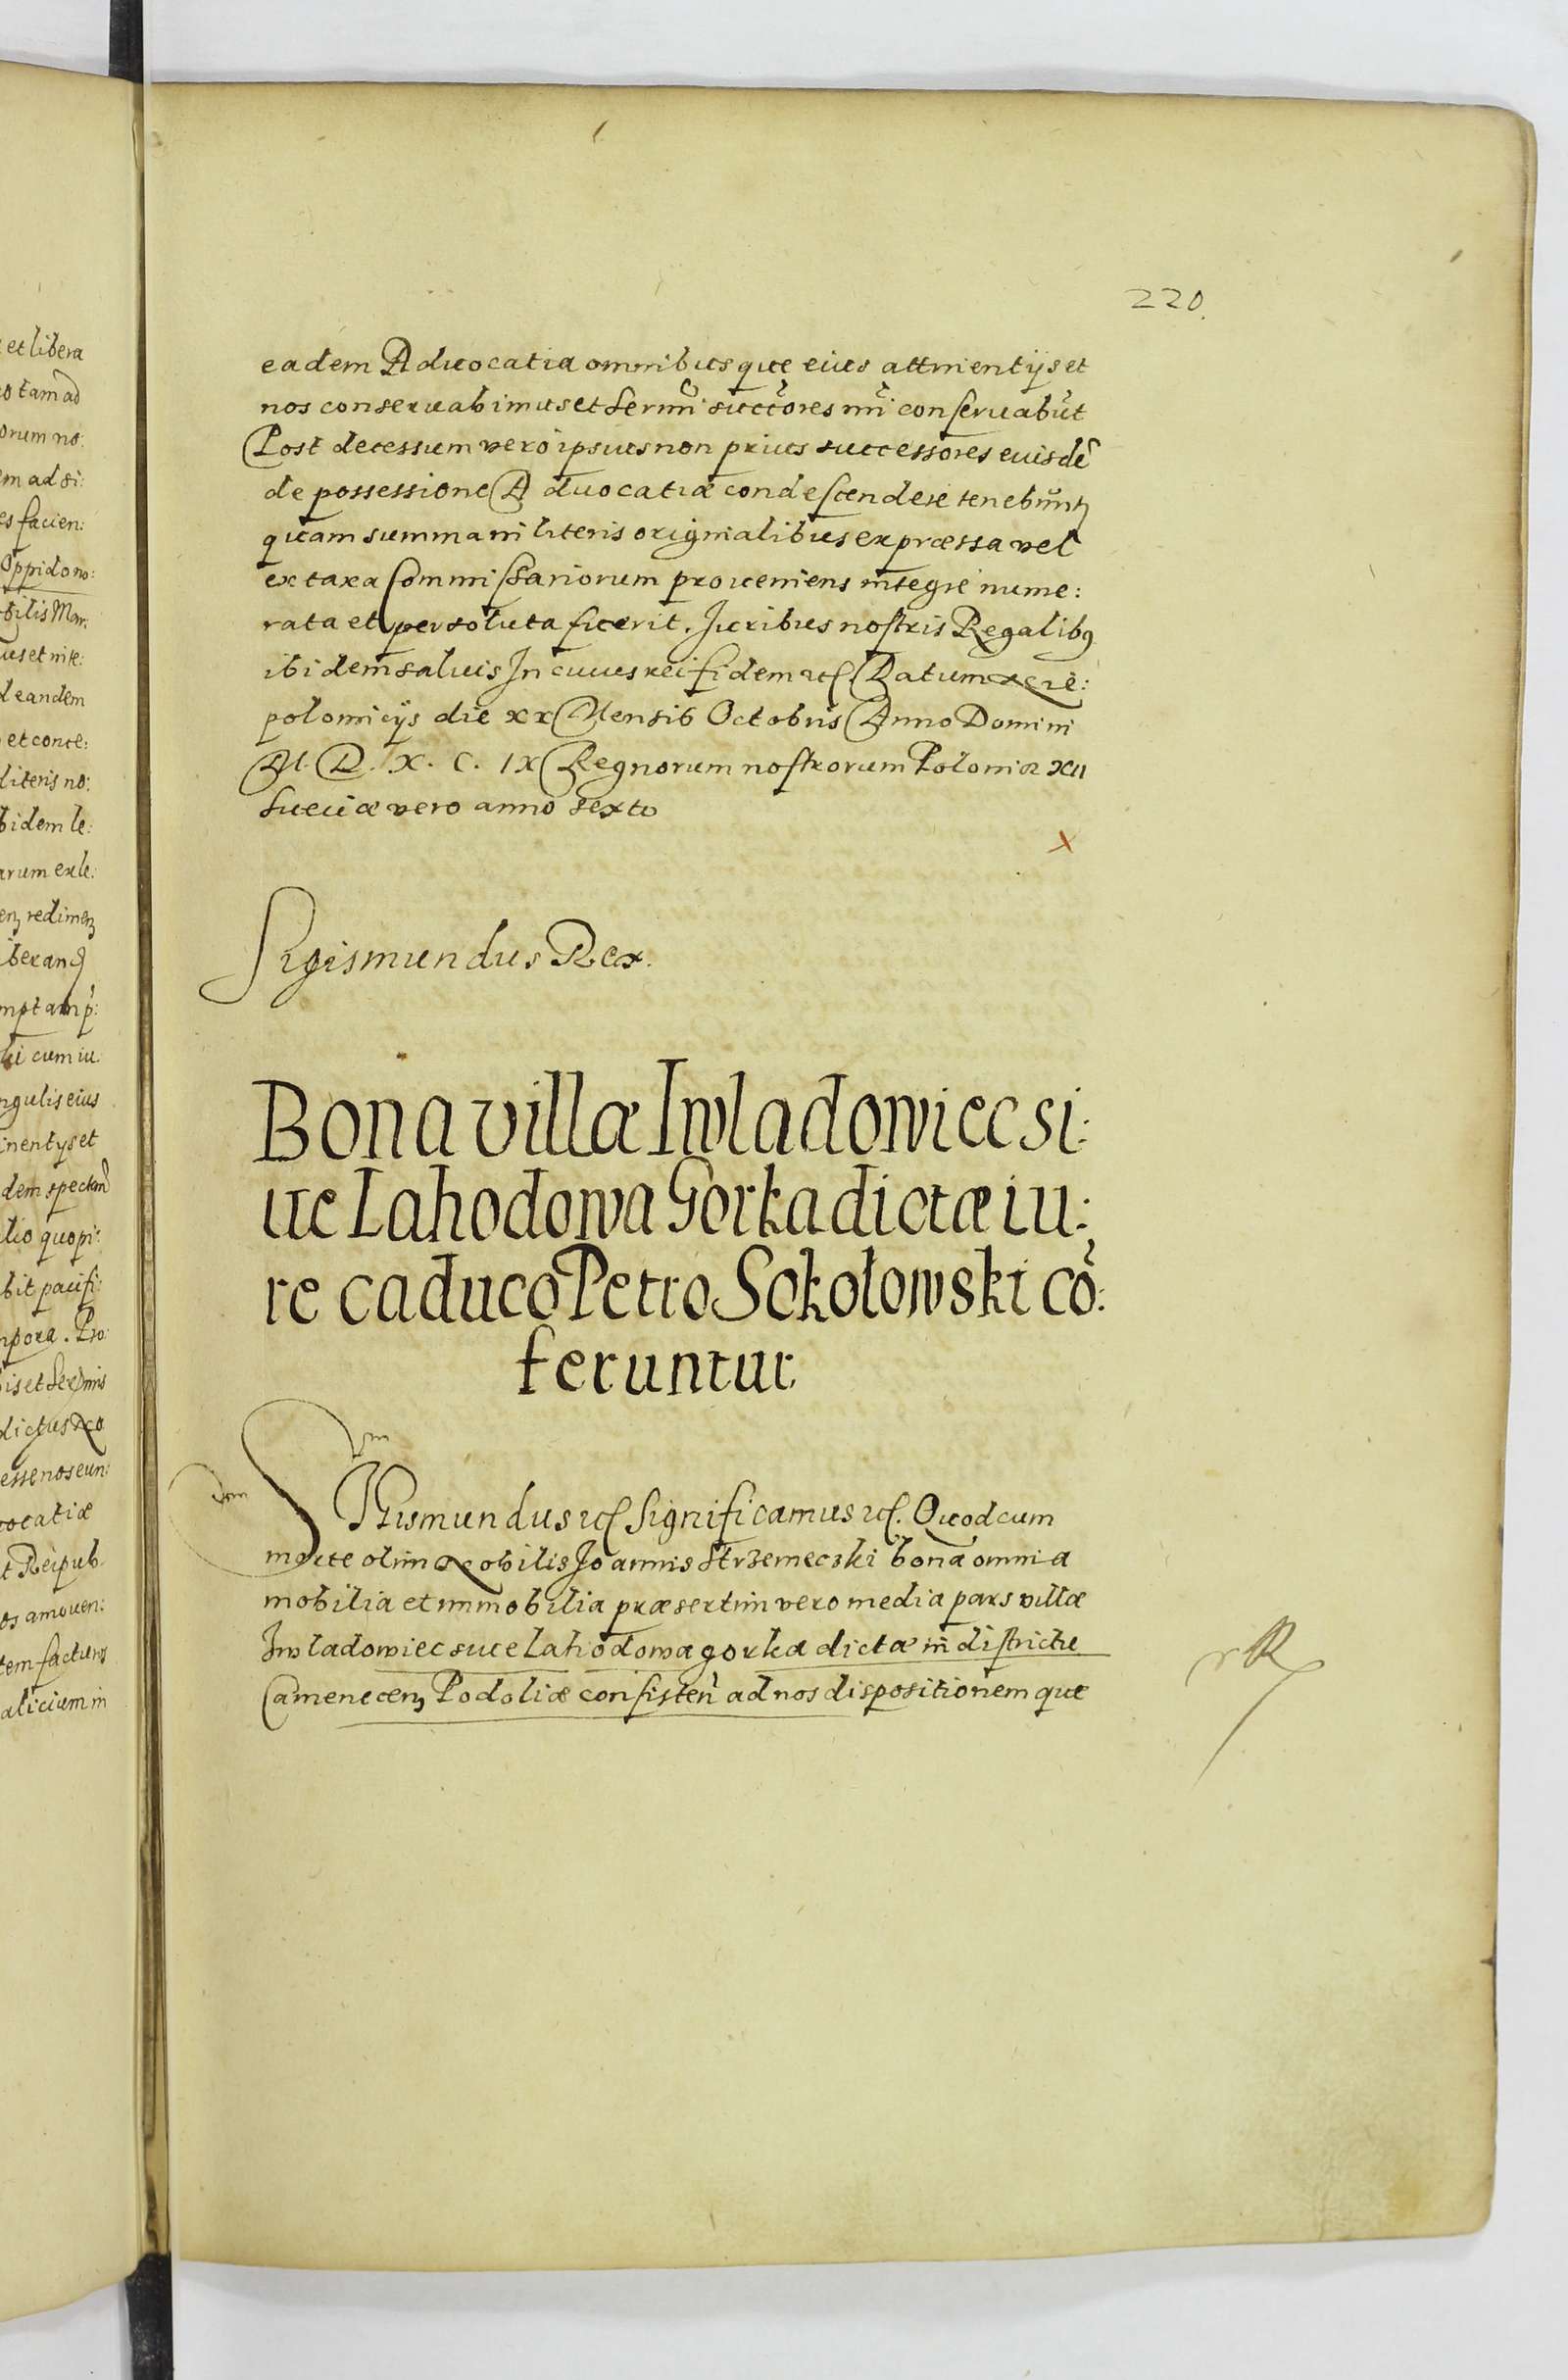 220.
eadem Aduocatia omnibusque eius attinentijs et
nos conseruabimus et Sermi succores nri conseruabūt
Post decessum vero ipsius non prius successores euisdē
de possessione Aduocatiæ condescendere tenebunt
quam summa in literis originalibus expræssa vel
ex taxa Commissariorum proueniens integre nume:
rata et persoluta fuerit. Juribus nostris Regalibq
ibidem saluis In cuius rei fidem etc. Datum Nie:
polomicijs die xx Mensis Octobris Anno Domini
M. D. X. C. IX Regnorum nostrorum Poloniæ XII
Sueciæ vero anno sexto
Sigismundus Rex.
Bona villæ Iwladowiec si:
ue Lahodowa Gorka dictæ iu:
re caduco Petro Sokołowski cō:
feruntur
Sigismundus etc Significamus etc. Quod cum
morte olim Nobilis Joannis Strzemeczki bona omnia
mobilia et immobilia præsertim vero media pars villæ
Iwladowiec siue Lahodowa gorka dictæ in districtu
Camenecen Podoliæ consisten ad nos dispositionemque
et libera
o tam ad
orum no:
em ad si:
es facien:
Oppido no:
bilis Mar:
us et nite:
d eandem
et conce:
literis no:
bidem le:
arum exle:
en redimen
iberand
mptam p:
ki cum iu:
ngulis eius
inentijs et
dem spectan
lio quopi:
bit pacifi:
mpora. Pro:
is et Sermis
dictus
esse nos eun:
ocatiæ
t Reipub
os amouen:
tem facturos
alicium in